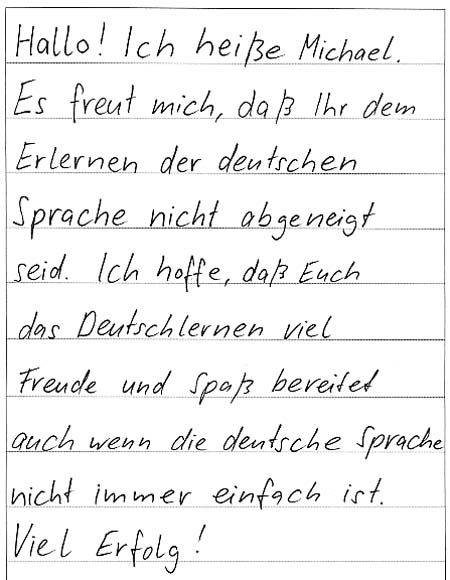 Hallo! Ich heiße Michael.
Es freut mich, daß Ihr dem
Erlernen der deutschen
Sprache nicht abgeneigt
seid. Ich hoffe, daß Euch
das Deutschlernen viel
Freude und Spaß bereitet
auch wenn die deutsche Sprache
nicht immer einfach ist.
Viel Erfolg!